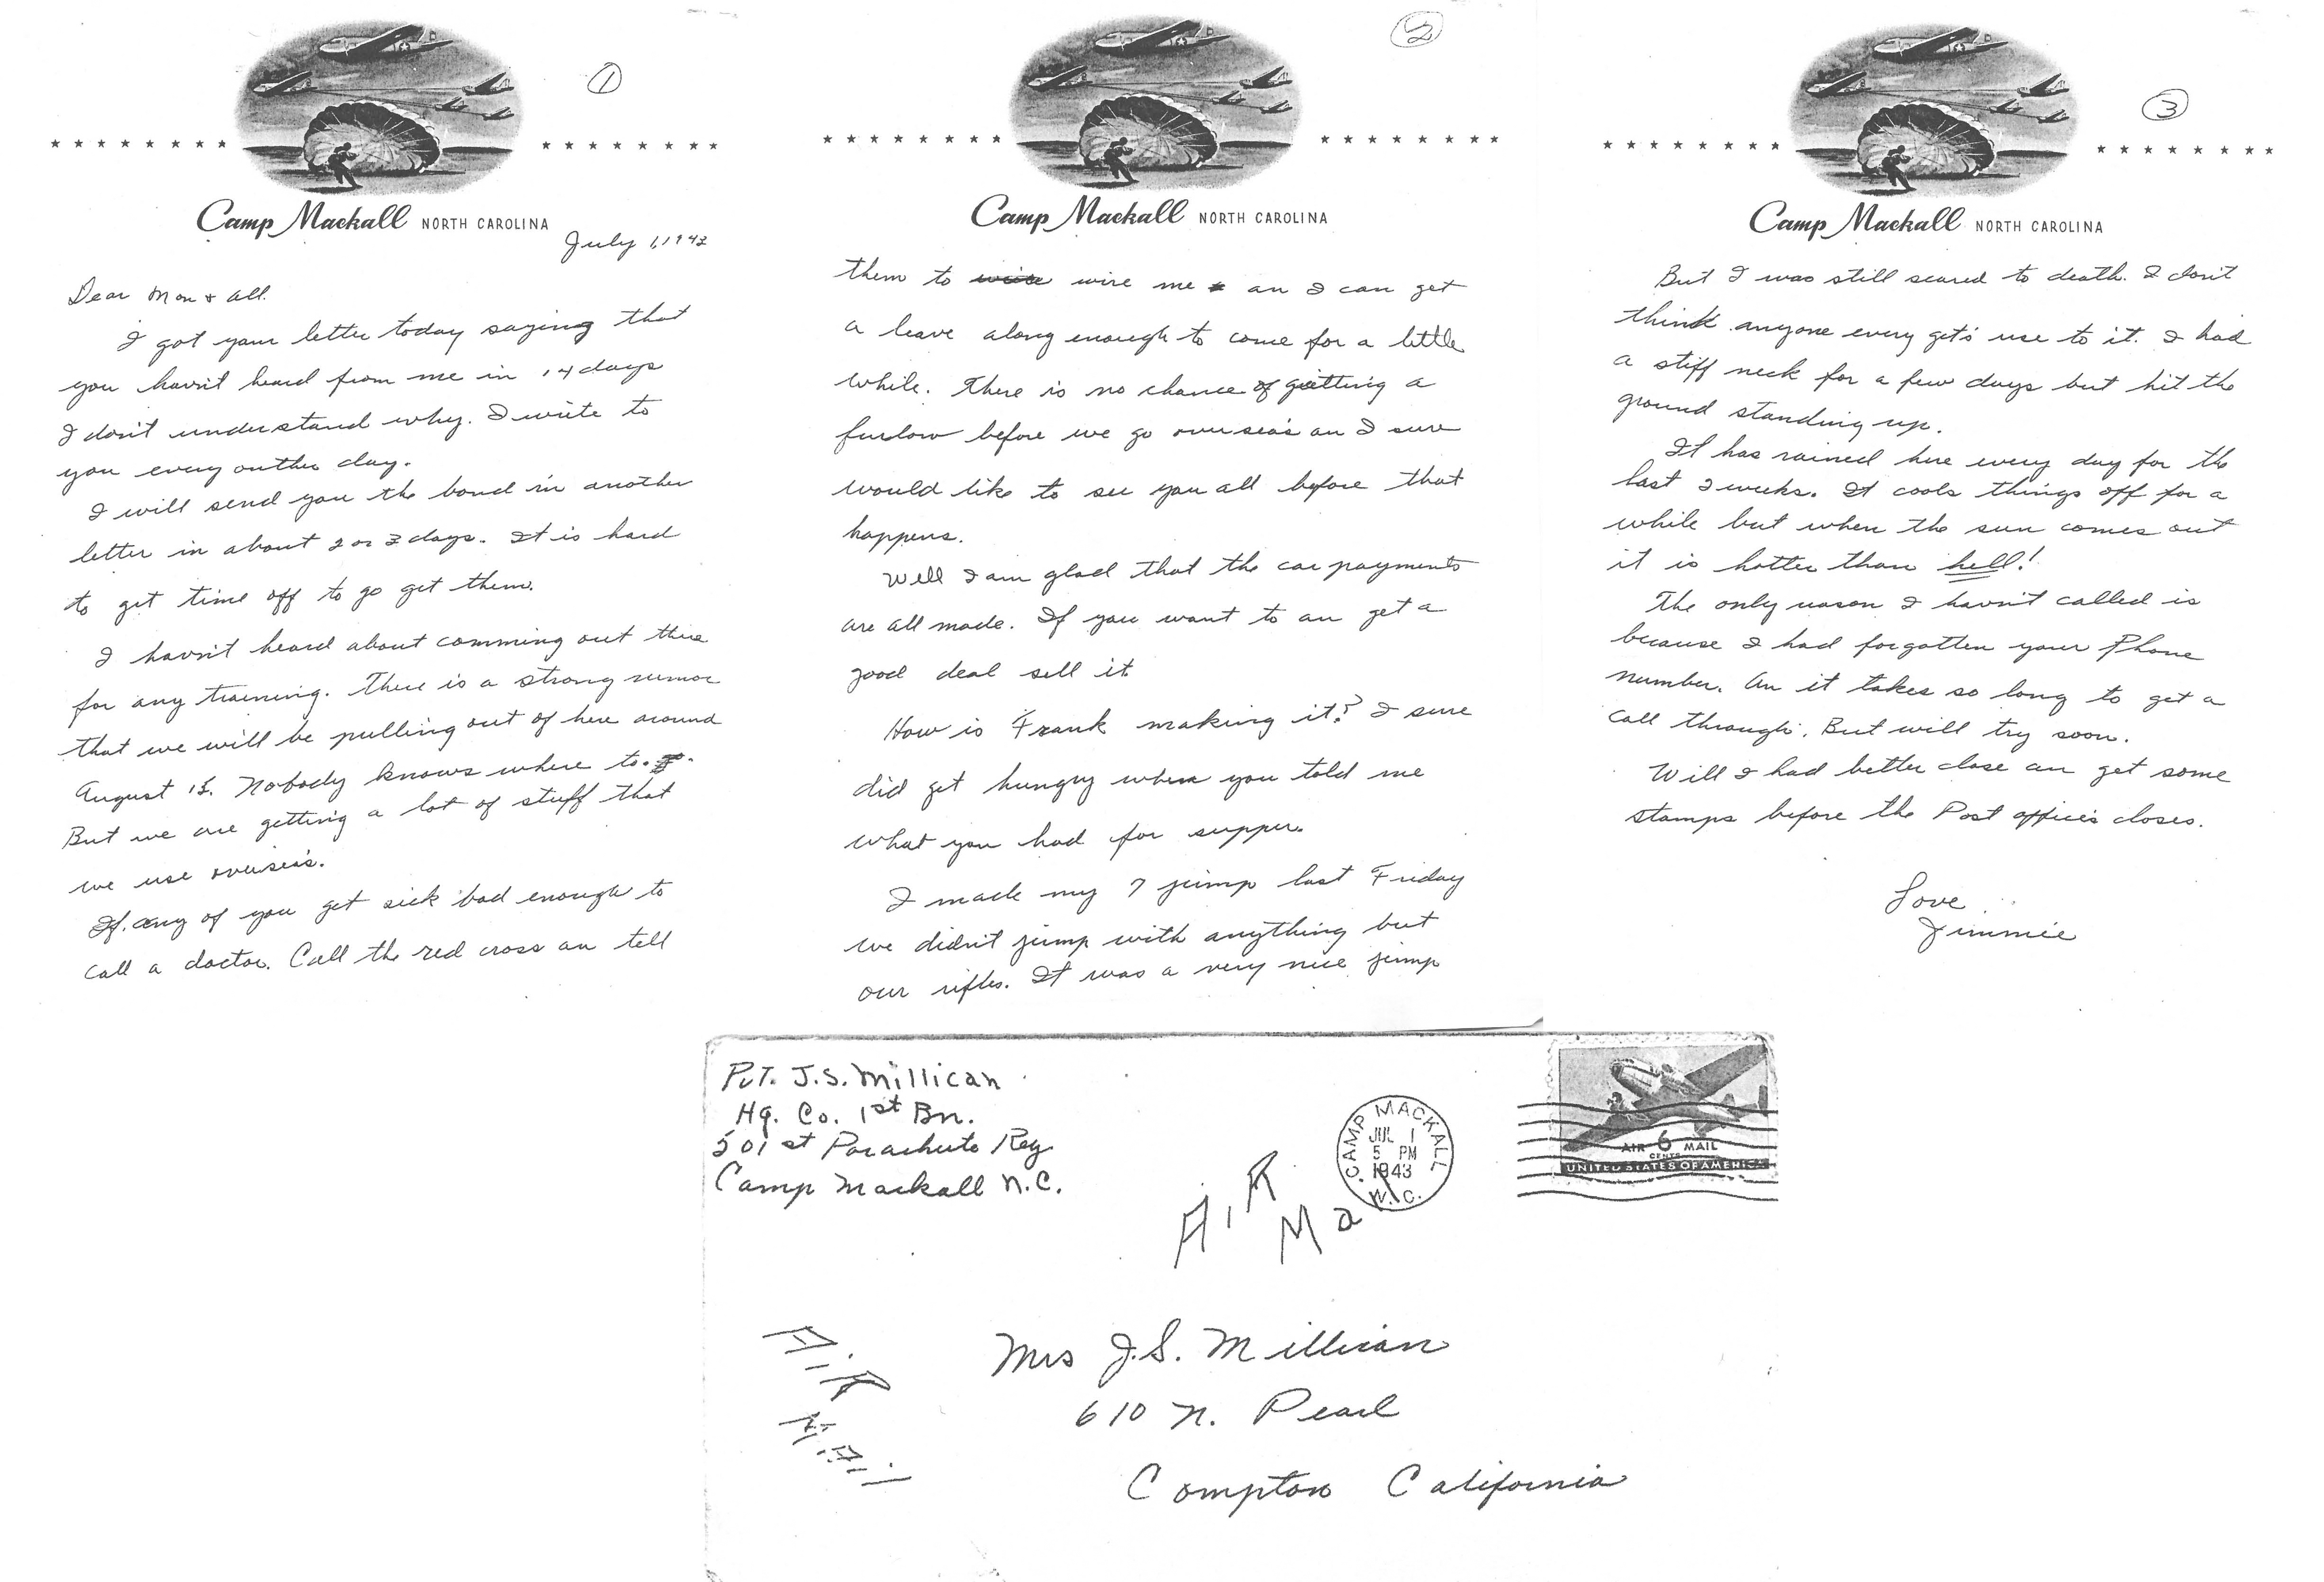 1
Camp Mackall NORTH CAROLINA
July 1, 1943
Dear Mom & all.
I got your letter today saying that
you havn't heard from me in 14 days
I don't understand why. I write to
you every outher day.
I will send you the bond in another
letter in about 2 or 3 days. It is hard
to get time off to go get them.
I havn't heard about comming out there
for any training. There is a strong rumor
that we will be pulling out of here around
August 15. Nobody knows where to.
But we are getting a lot of stuff that
we use oversea's.
If any of you get sick bad enough to
call a doctor. Call the red cross an tell
2
Camp Mackall NORTH CAROLINA
them to wire me an I can get
a leave along enough to come for a little
while. There is no chance of getting a
furlow before we go oversea's an I sure
would like to see you all before that
happens.
Well I am glad that the car payments
are all made. If you want to an get a
good deal sell it.
How is Frank making it? I sure
did get hungry when you told me
what you had for supper.
I made my 7 jump last Friday
we didn't jump with anything but
our rifles. It was a very nice jump
3
Camp Mackall NORTH CAROLINA
But I was still scared to death. I don't
think anyone every get's use to it. I had
a stiff neck for a few days but hit the
ground standing up.
It has rained here every day for the
last 2 weeks. It cools things off for a
while but when the sun comes out
it is hotter than hell!
The only reason I havn't called is
because I had forgotten your Phone
number. An it takes so long to get a
call through. But will try soon.
Will I had better close an get some
stamps before the Post office's closes.
Love
Jimmie
Pvt. J.S. Millican
Hq. Co. 1st Bn.
501 st Parachute Reg
Camp Mackall N.C.
CAMP MACKALL
JUL 1
5 PM
1943
N.C.
AIR 6 MAIL
CENTS
UNITED STATES OF AMERICA
AiR
Mail
AiR
MAil
Mrs J.S. Millican
610 N. Pearl
Compton California